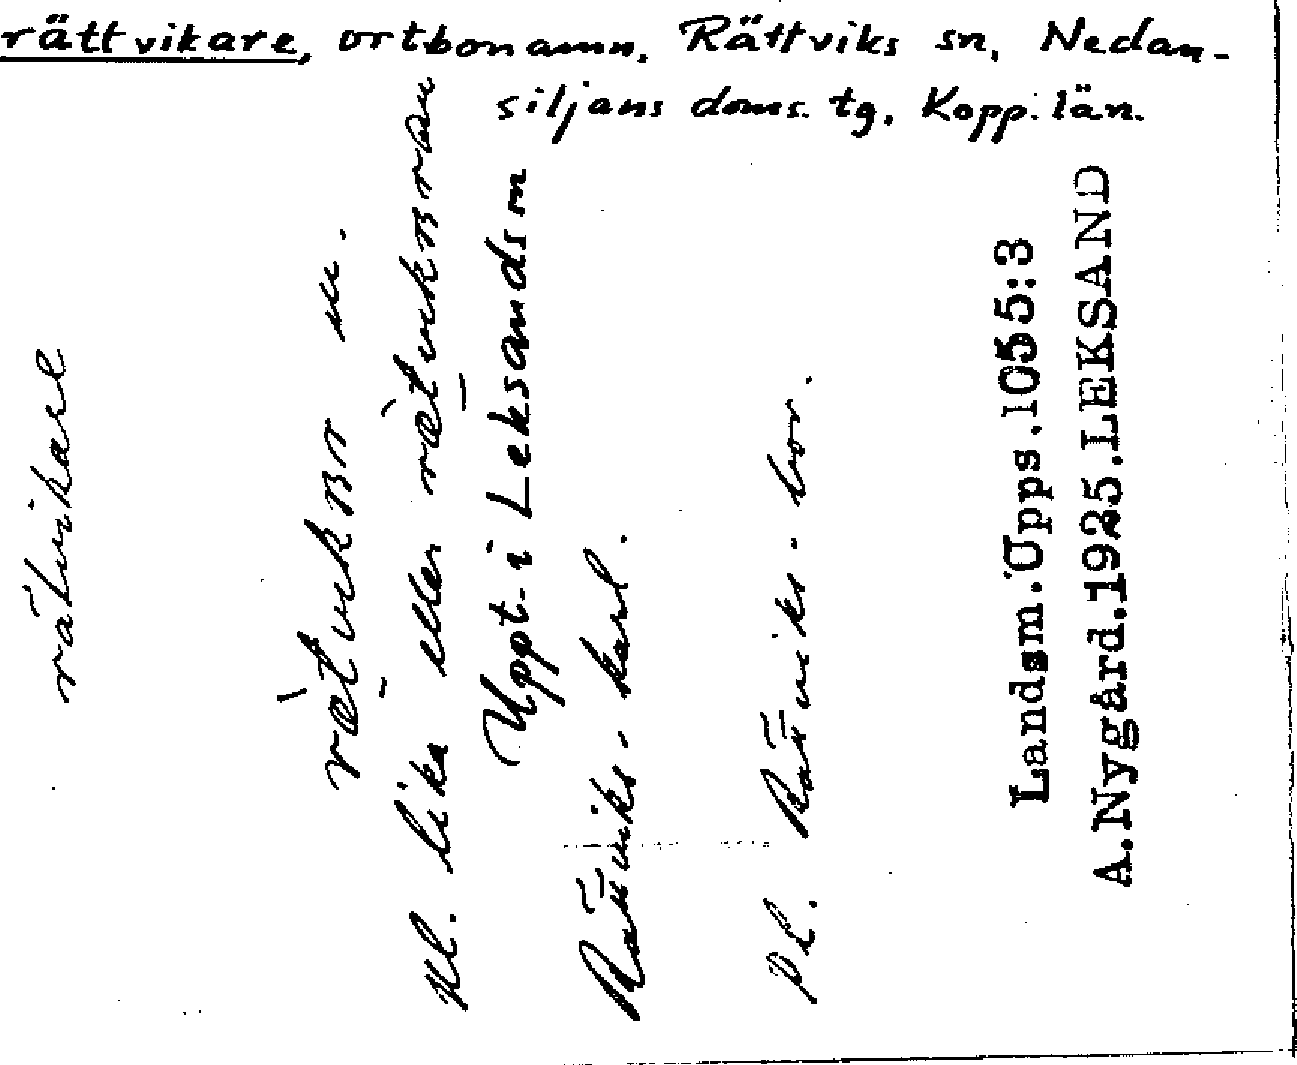 rättvikare, ortbonamn, Rättviks sn, Nedan-
siljans doms. tg. Kopp. län.
rätvikare
m.
Pl. lika eller
Uppt. i Leksands sn
Rättviks-karl.
Pl. Rättviks-bor.
Landsm. Upps. 1055:3
A. Nygård. 1925. LEKSAND